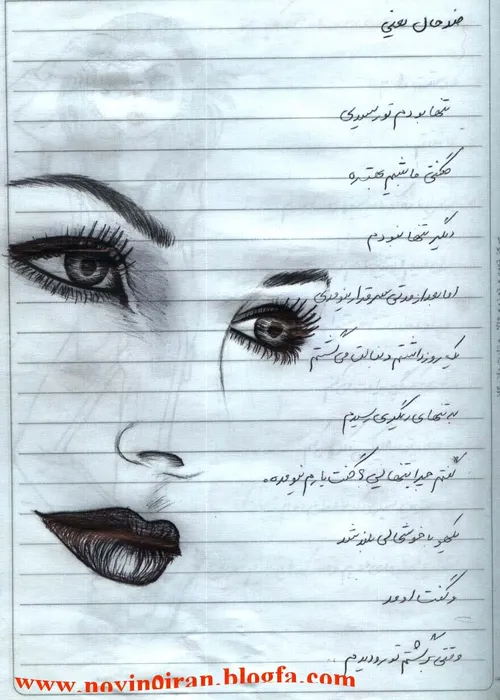 ضد حال یعنی
تنها بودم تو رسیدی
گفتی ما شیم بهتره
دیگر تنها نبودم
اما بعد از مدتی سر قرار نیومدی
یک روز داشتم دنبالت می گشتم
به تنهای دیگری رسیدم
گفتم چرا تنهایی؟ گفت یارم نیومده.
یکهو با خوشحالی بلند شد
و گفت اومد
وقتی برگشتم تو رو دیدم..
www.novin0iran.blogfa.com